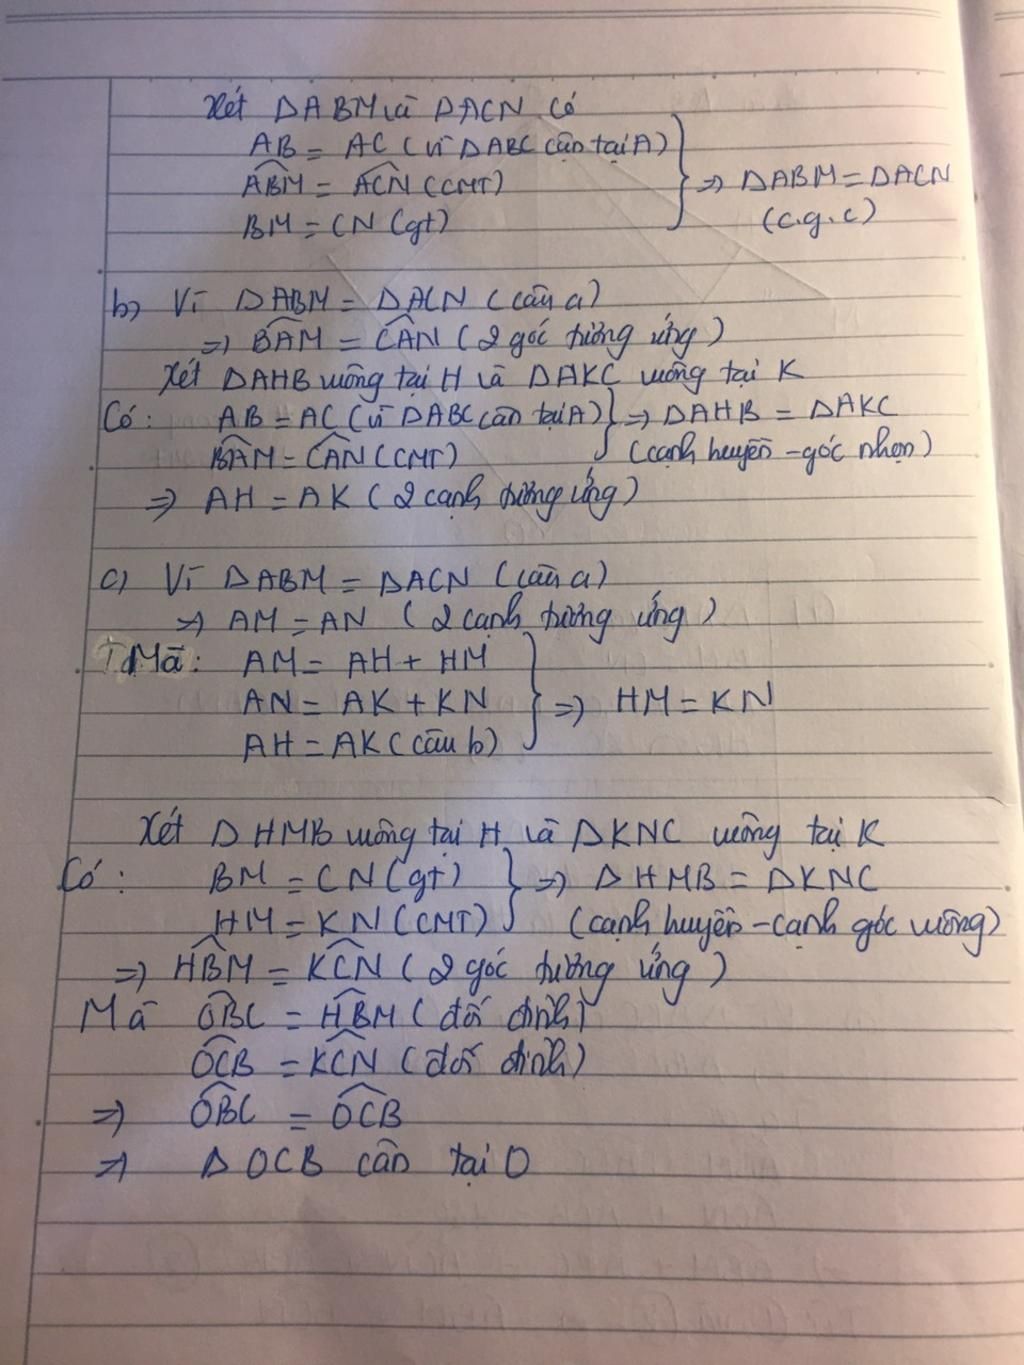 Xét ΔABM và ΔACN có
AB = AC (vì ΔABC cân tại A)
$\widehat{ABM}$ = $\widehat{ACN}$ (CMT) } ⇒ ΔABM = ΔACN
BM = CN (gt) (c.g.c)
b) Vì ΔABM = ΔACN (câu a)
⇒ $\widehat{BAM}$ = $\widehat{CAN}$ (2 góc tương ứng)
Xét ΔAHB vuông tại H và ΔAKC vuông tại K
Có: AB = AC (vì ΔABC cân tại A) } ⇒ ΔAHB = ΔAKC
$\widehat{BAM}$ = $\widehat{CAN}$ (CMT) (cạnh huyền - góc nhọn)
⇒ AH = AK (2 cạnh tương ứng)
c) Vì ΔABM = ΔACN (câu a)
⇒ AM = AN (2 cạnh tương ứng)
Mà: AM = AH + HM
AN = AK + KN } ⇒ HM = KN
AH = AK (câu b)
Xét ΔHMB vuông tại H và ΔKNC vuông tại K
Có: BM = CN (gt) } ⇒ ΔHMB = ΔKNC
HM = KN (CMT) (cạnh huyền - cạnh góc vuông)
⇒ $\widehat{HBM}$ = $\widehat{KCN}$ (2 góc tương ứng)
Mà $\widehat{OBC}$ = $\widehat{HBM}$ (đối đỉnh)
$\widehat{OCB}$ = $\widehat{KCN}$ (đối đỉnh)
⇒ $\widehat{OBC}$ = $\widehat{OCB}$
⇒ ΔOCB cân tại O